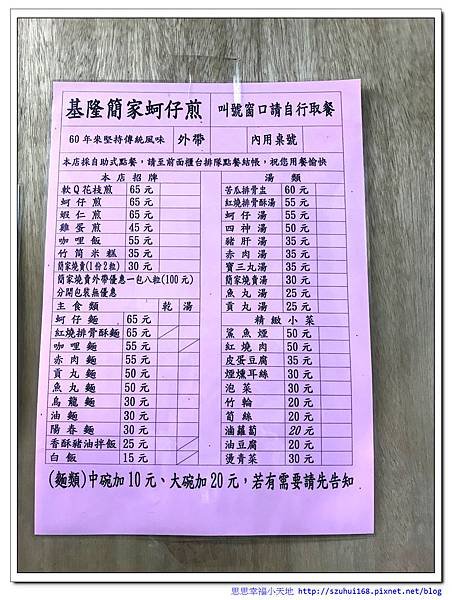 基隆簡家蚵仔煎
叫號窗口請自行取餐
60年來堅持傳統風味 外帶 內用桌號
本店採自助式點餐，請至前面櫃台排隊點餐結帳，祝您用餐愉快
本店招牌
軟Q花枝煎 65元
蚵仔煎 65元
蝦仁煎 65元
雞蛋煎 45元
咖哩飯 55元
竹筒米糕 35元
簡家燒賣(1份2粒) 30元
簡家燒賣外帶優惠一包八粒(100元)
分開包裝無優惠
主食類 乾 湯
蚵仔麵 65元
紅燒排骨酥麵 65元
咖哩麵 55元
赤肉麵 55元
貢丸麵 50元
魚丸麵 50元
烏龍麵 30元
油麵 30元
陽春麵 30元
香酥豬油拌飯 25元
白飯 15元
湯類
苦瓜排骨盅 60元
紅燒排骨酥湯 55元
蚵仔湯 55元
四神湯 50元
豬肝湯 35元
赤肉湯 35元
寶三丸湯 35元
簡家燒賣湯 30元
魚丸湯 25元
貢丸湯 25元
精緻小菜
鯊魚煙 50元
紅燒肉 50元
皮蛋豆腐 35元
煙燻耳絲 30元
泡菜 30元
竹輪 20元
筍絲 20元
滷蘿蔔 20元
油豆腐 20元
燙青菜 30元
(麵類)中碗加10元、大碗加20元，若有需要請先告知
思思幸福小天地 http://szuhui168.pixnet.net/blog